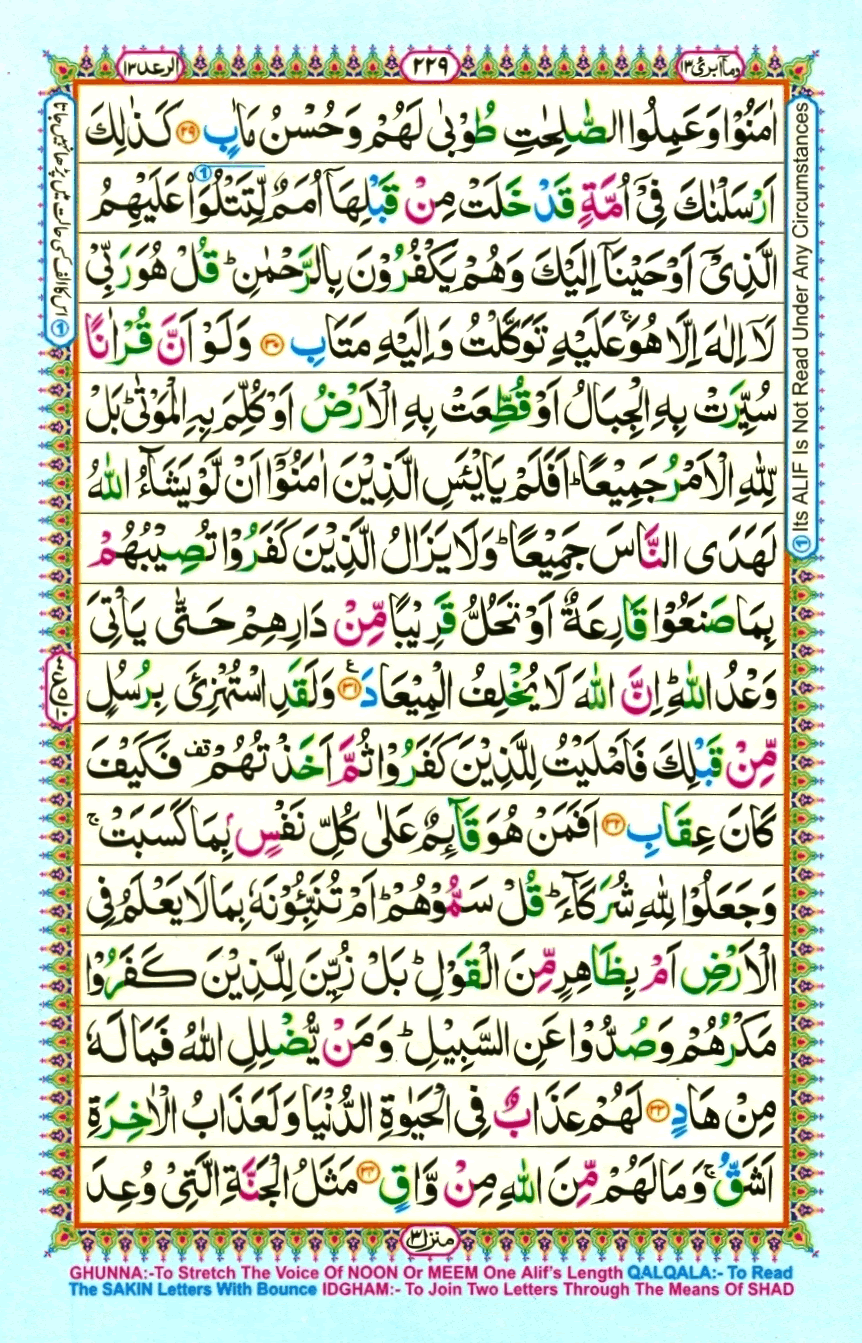 وماۤ ابرئ ١٣
٢٢٩
الرعد ١٣
اٰمَنُوْا وَعَمِلُوا الصّٰلِحٰتِ طُوْبٰى لَهُمْ وَحُسْنُ مَاٰبٍ ﴿٢٩﴾ كَذٰلِكَ
اَرْسَلْنٰكَ فِىْۤ اُمَّةٍ قَدْ خَلَتْ مِنْ قَبْلِهَاۤ اُمَمٌ لِّتَتْلُوَا۟ عَلَيْهِمُ
الَّذِىْۤ اَوْحَيْنَاۤ اِلَيْكَ وَهُمْ يَكْفُرُوْنَ بِالرَّحْمٰنِ ؕ قُلْ هُوَ رَبِّىْ
لَاۤ اِلٰهَ اِلَّا هُوَ ۚ عَلَيْهِ تَوَكَّلْتُ وَاِلَيْهِ مَتَابِ ﴿٣٠﴾ وَلَوْ اَنَّ قُرْاٰنًا
سُيِّرَتْ بِهِ الْجِبَالُ اَوْ قُطِّعَتْ بِهِ الْاَرْضُ اَوْ كُلِّمَ بِهِ الْمَوْتٰى ؕ بَلْ
لِّلّٰهِ الْاَمْرُ جَمِيْعًا ؕ اَفَلَمْ يَايْـَٔسِ الَّذِيْنَ اٰمَنُوْۤا اَنْ لَّوْ يَشَآءُ اللّٰهُ
لَهَدَى النَّاسَ جَمِيْعًا ؕ وَلَا يَزَالُ الَّذِيْنَ كَفَرُوْا تُصِيْبُهُمْ
بِمَا صَنَعُوْا قَارِعَةٌ اَوْ تَحُلُّ قَرِيْبًا مِّنْ دَارِهِمْ حَتّٰى يَاْتِىَ
وَعْدُ اللّٰهِ ؕ اِنَّ اللّٰهَ لَا يُخْلِفُ الْمِيْعَادَ ﴿٣١﴾ ع وَلَقَدِ اسْتُهْزِئَ بِرُسُلٍ
مِّنْ قَبْلِكَ فَاَمْلَيْتُ لِلَّذِيْنَ كَفَرُوْا ثُمَّ اَخَذْتُهُمْ قف فَكَيْفَ
كَانَ عِقَابِ ﴿٣٢﴾ اَفَمَنْ هُوَ قَآئِمٌ عَلٰى كُلِّ نَفْسٍۭ بِمَا كَسَبَتْ ۚ
وَجَعَلُوْا لِلّٰهِ شُرَكَآءَ ؕ قُلْ سَمُّوْهُمْ ؕ اَمْ تُنَبِّـُٔوْنَهٗ بِمَا لَا يَعْلَمُ فِى
الْاَرْضِ اَمْ بِظَاهِرٍ مِّنَ الْقَوْلِ ؕ بَلْ زُيِّنَ لِلَّذِيْنَ كَفَرُوْا
مَكْرُهُمْ وَصُدُّوْا عَنِ السَّبِيْلِ ؕ وَمَنْ يُّضْلِلِ اللّٰهُ فَمَا لَهٗ
مِنْ هَادٍ ﴿٣٣﴾ لَهُمْ عَذَابٌ فِى الْحَيٰوةِ الدُّنْيَا وَلَعَذَابُ الْاٰخِرَةِ
اَشَقُّ ۚ وَمَا لَهُمْ مِّنَ اللّٰهِ مِنْ وَّاقٍ ﴿٣٤﴾ مَثَلُ الْجَنَّةِ الَّتِىْ وُعِدَ
① Its ALIF Is Not Read Under Any Circumstances
① اس کا الف کسی حالت میں پڑھا نہیں جاتا
منزل ٣
GHUNNA:-To Stretch The Voice Of NOON Or MEEM One Alif's Length QALQALA:- To Read
The SAKIN Letters With Bounce IDGHAM:- To Join Two Letters Through The Means Of SHAD